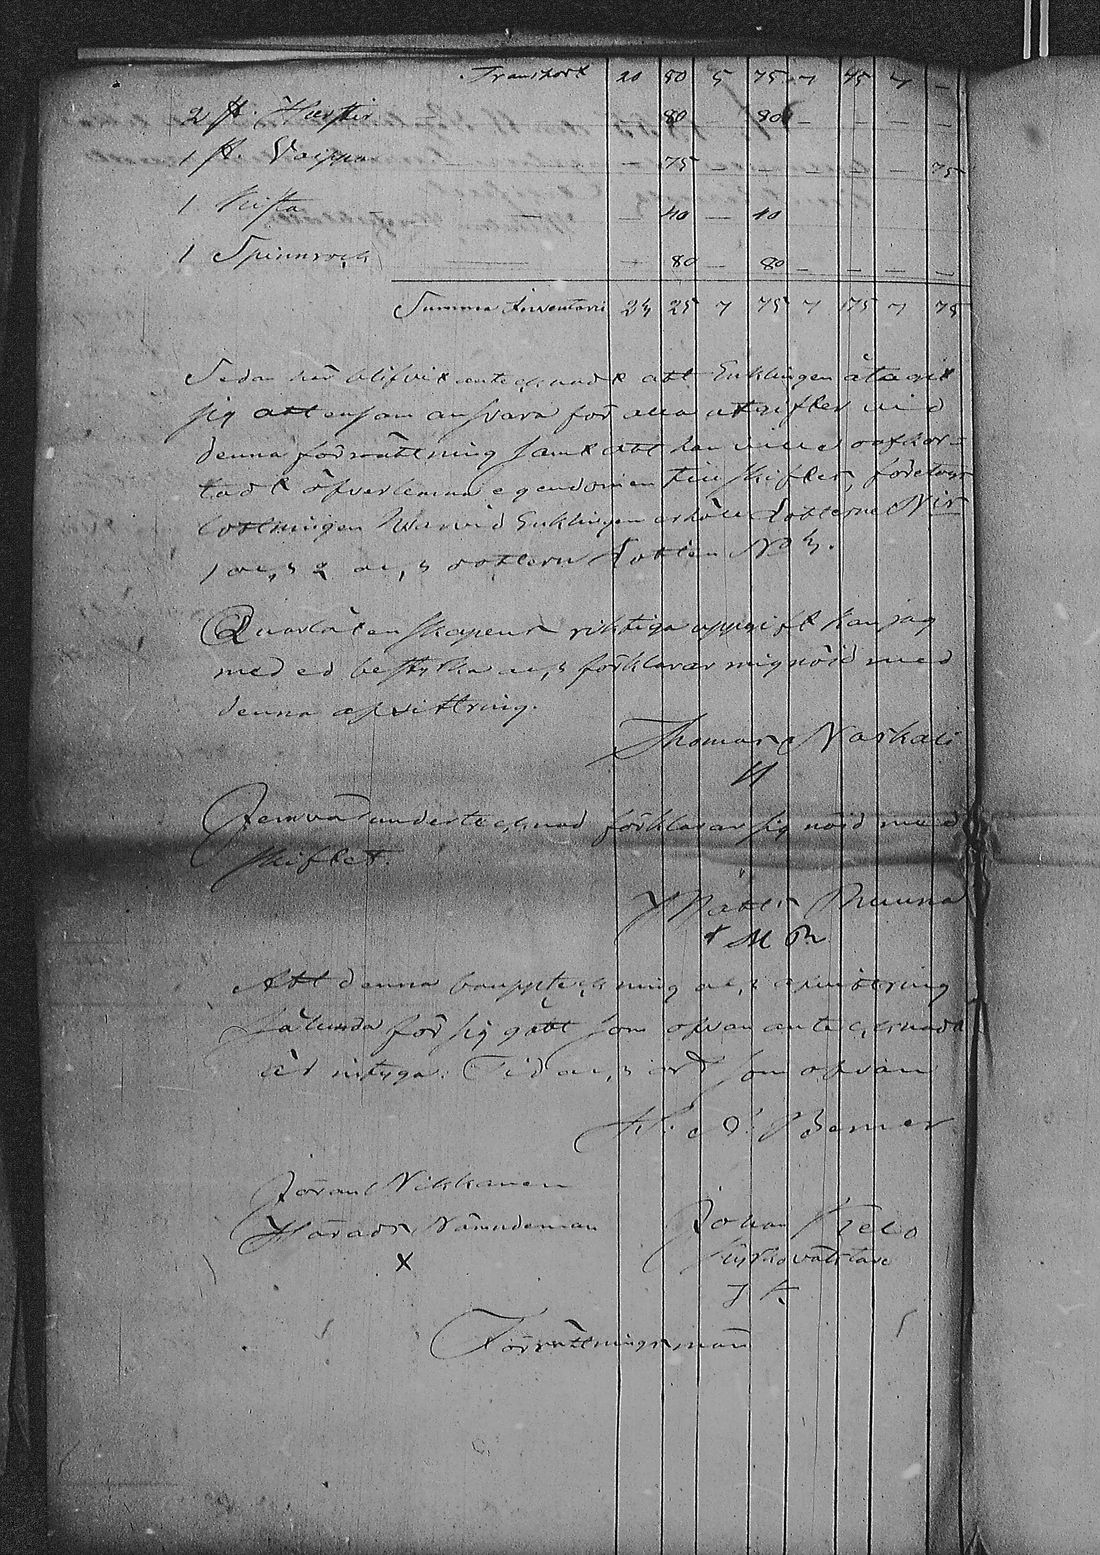 Transport 20 80 5 75 7 45 7 —
2 st. Hästir — 80 — 80 — — — —
1 st. Vaippa — 75 — — — — — 75
1 Kista — 40 — 40
1 Spinnrock — 80 — 80 — — — —
Summa Inventarii 24 25 7 75 7 175 7 75
Sedan här blifvit antecknadt att Enklingen åtagit
sig att ensam ansvara för alla utgifter vid
denna förrättning samt att han velat oafkor-
tadt öfverlemna egendomen till skiftet, företogs
lottningen hvarvid Enklingen erhöll Lotterne N:is
1 och 2 och Lotten N:o 4.
Qvarlåtenskapens riktiga uppgift kan jag
med ed bestyrka och förklarar mig nöjd med
denna afvittring.
Thomas Naskali
Jemväl undertecknad förklarar sig nöjd med
skiftet.
Matts Ruuna
M R
Att denna bouppteckning och afvittring
sålunda för sig gått som ofvan antecknadt
är intyga. Tid och ort som ofvan
Bemer
Göran Nikkanen
Härads Nämndeman
X
Johan Kelo
Kyrkovaktare
J K
Förrättningsmän